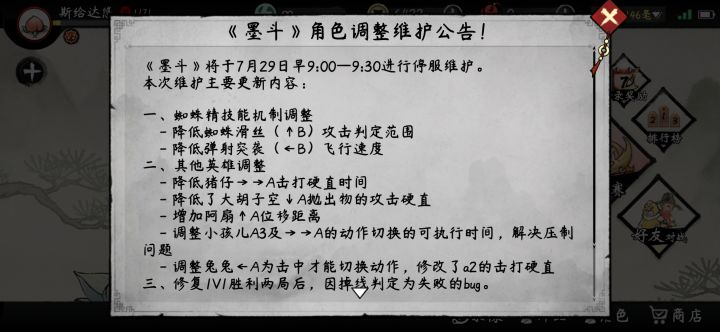 斯给达
《墨斗》角色调整维护公告！
《墨斗》将于7月29日早9:00—9:30进行停服维护。
本次维护主要更新内容：
一、蜘蛛精技能机制调整
－降低蜘蛛滑丝（↑B）攻击判定范围
－降低弹射突袭（←B）飞行速度
二、其他英雄调整
－降低猪仔→→A击打硬直时间
－降低了大胡子空↓A抛出物的攻击硬直
－增加阿扇↑A位移距离
－调整小孩儿A3及→→A的动作切换的可执行时间，解决压制
问题
－调整兔兔←A为击中才能切换动作，修改了a2的击打硬直
三、修复1V1胜利两局后，因掉线判定为失败的bug。
46毫
排行榜
赛
好友对战
角色
商店